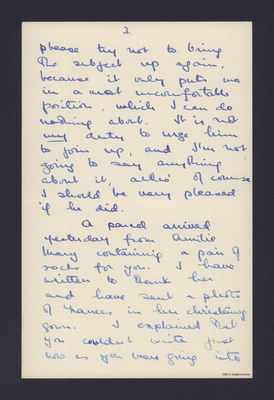 3.
please try not to bring
the subject up again,
because it only puts me
in a most uncomfortable
position, which I can do
nothing about. It is not
my duty to urge him
to join up, and I'm not
going to say anything
about it, altho' of course
I should be very pleased
if he did.
A parcel arrived
yesterday from Auntie
Mary containing a pair of
socks for you. I have
written to thank her
and have sent a photo
of Frances in her christening
gown. I explained that
you couldn't write just
now as you were going into